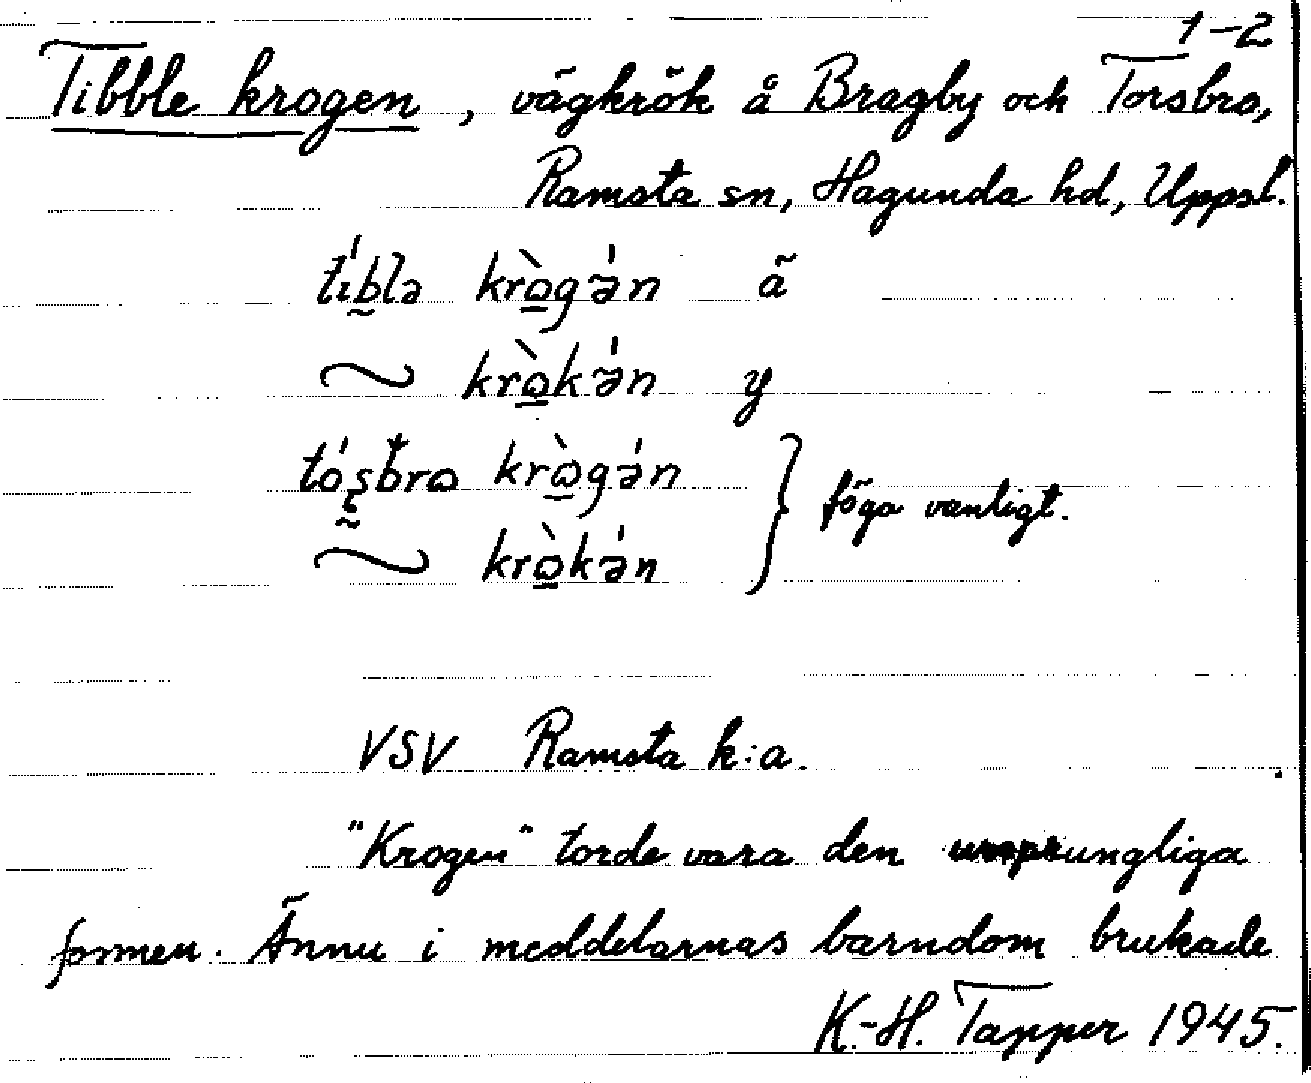 1-2
Tibble krogen, vägkrök å Bragby och Torsbro,
Ramsta sn, Hagunda hd, Uppsl.
tíb̰lə krò̱gə́n ä
~ krò̱kə́n y
tó̰ʂbrω krὼ̱gə́n } föga vanligt.
~ krὼ̱kə́n
VSV Ramsta k:a.
"Krogen" torde vara den ursprungliga
formen. Ännu i meddelarnas barndom brukade
K.-H. Tapper 1945.